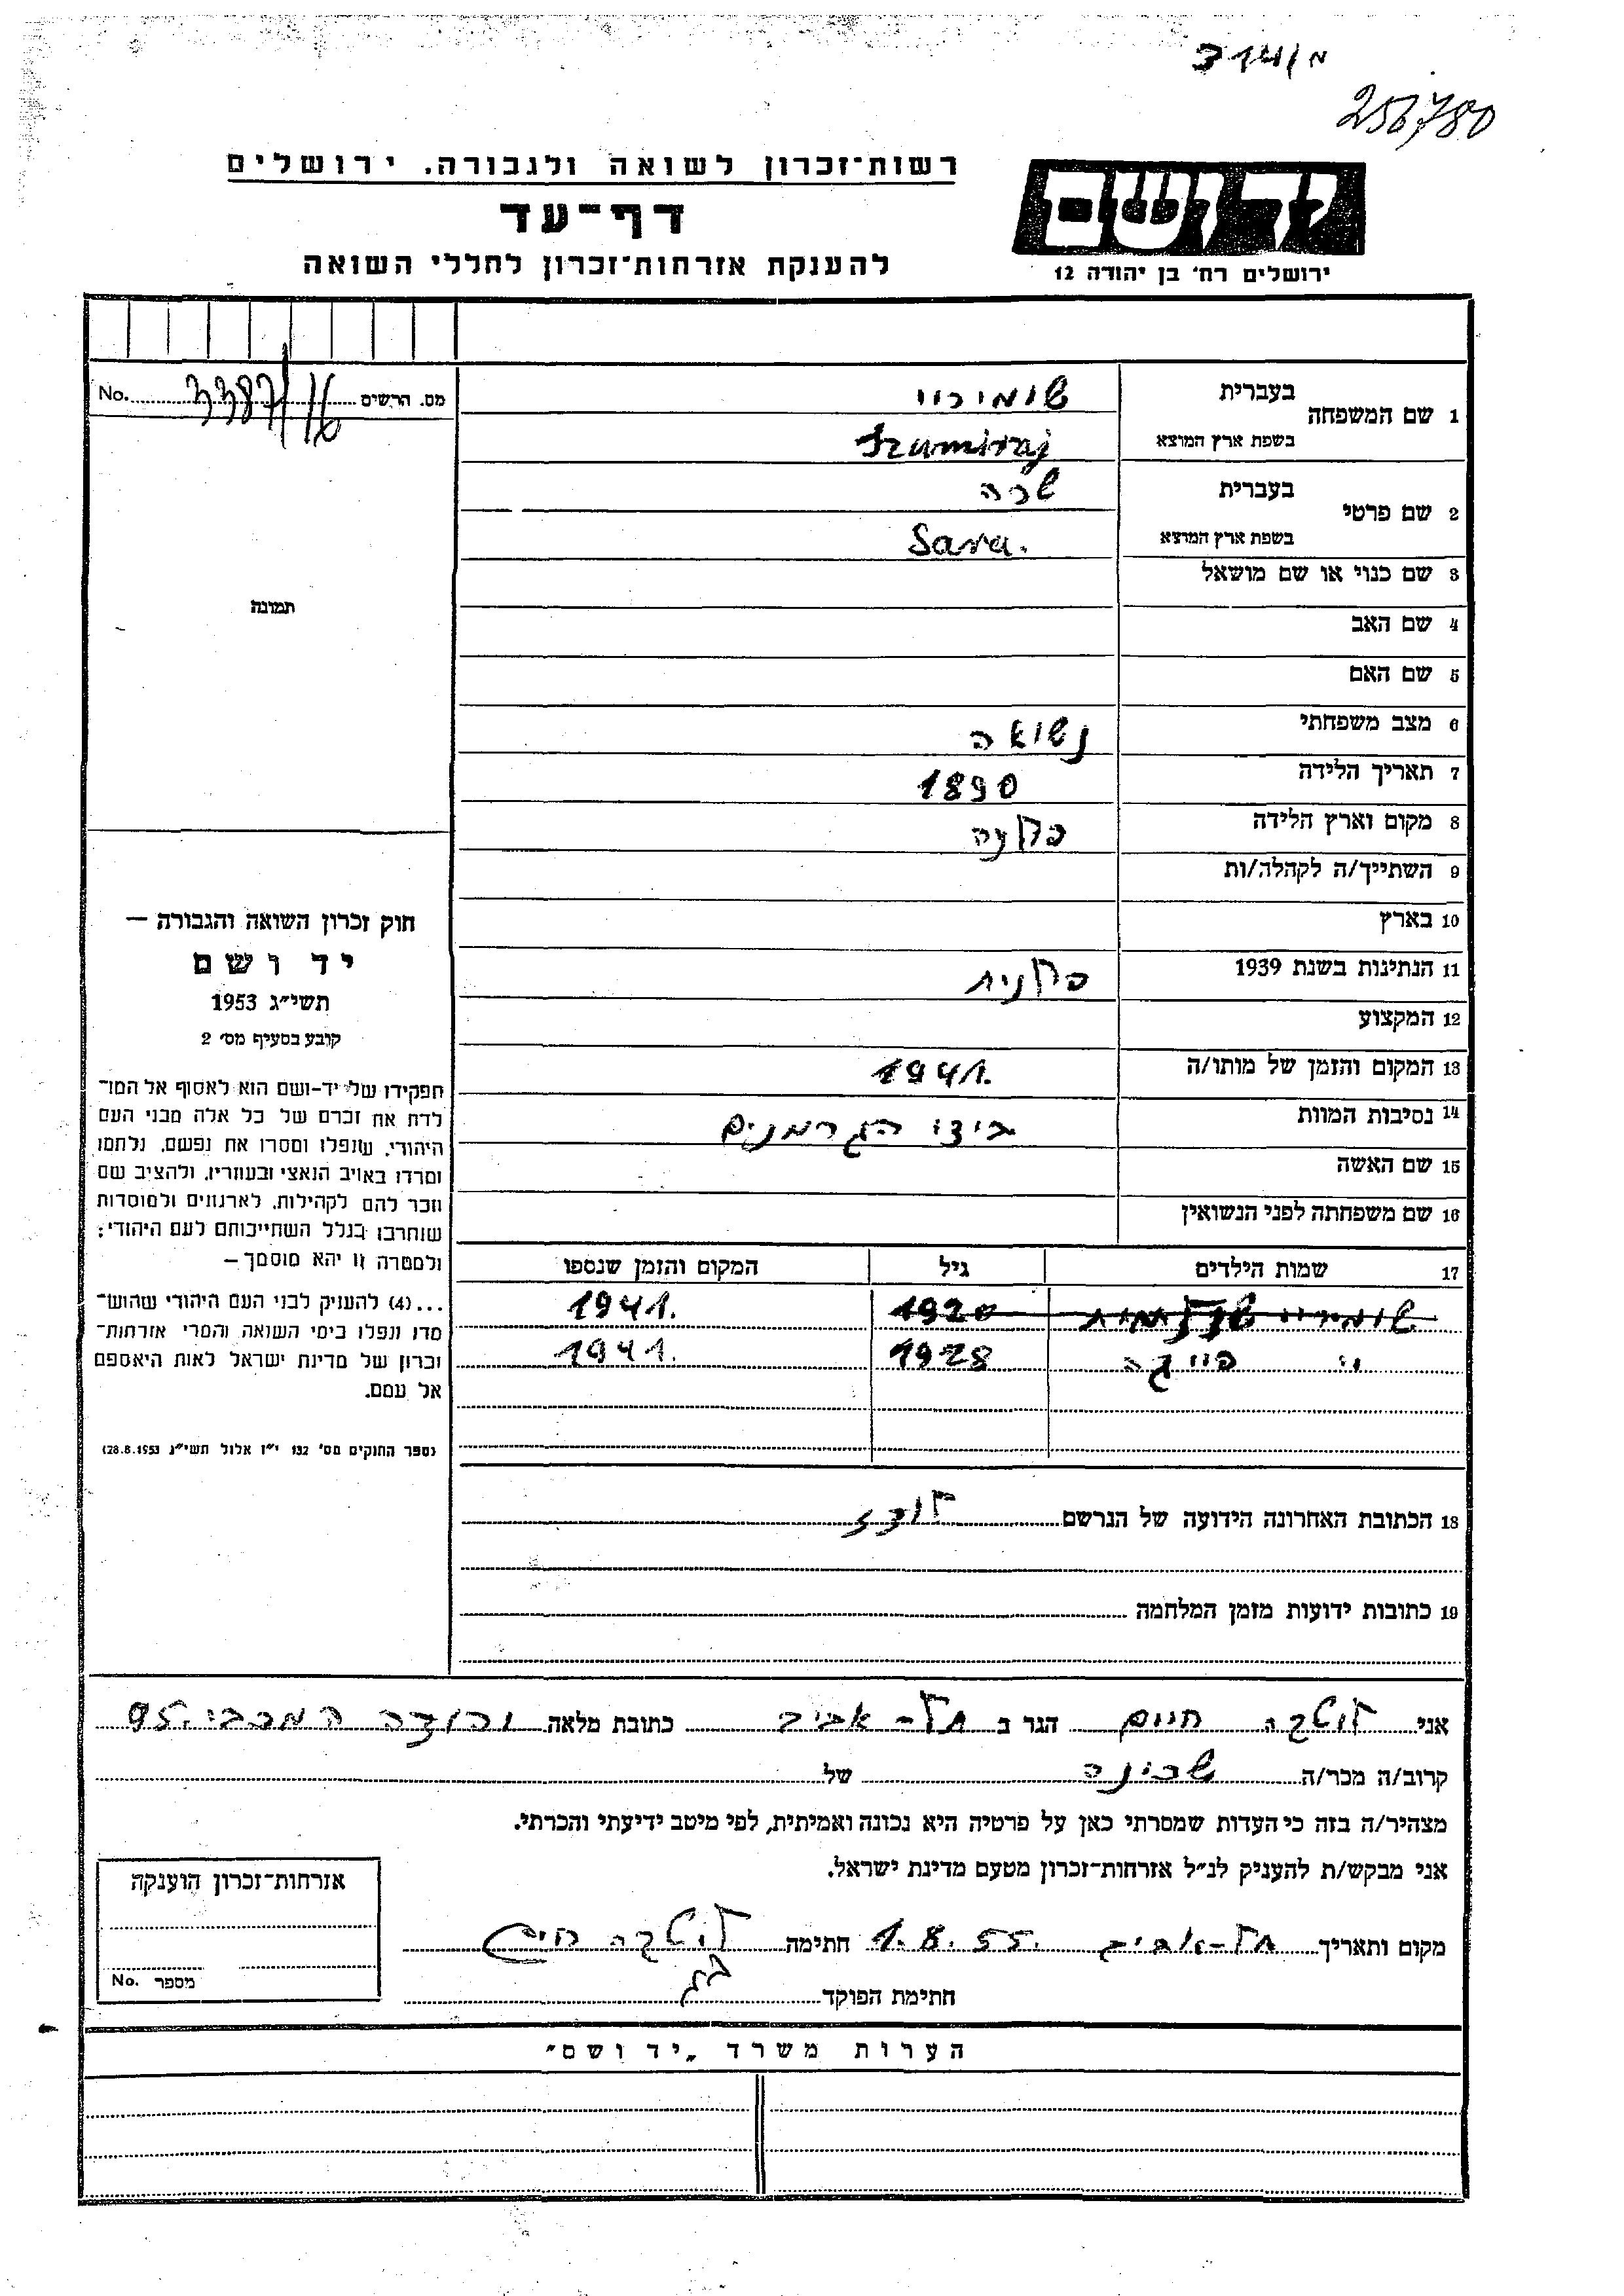 256780
רשות־זכרון לשואה ולגבורה. ירושלים
דף־עד
להענקת אזרחות־זכרון לחללי השואה
ידושם
ירושלים רח׳ בן יהודה 12
מס. הרשים No. 3387/16
1 שם המשפחה
בעברית שומירוי
בשפת ארץ המוצא Szumiraj
2 שם פרטי
בעברית שרה
בשפת ארץ המוצא Sara.
3 שם כנוי או שם מושאל
4 שם האב
5 שם האם
6 מצב משפחתי נשואה
7 תאריך הלידה 1890
8 מקום וארץ הלידה פולניה
9 השתייך/ה לקהלה/ות
10 בארץ
11 הנתינות בשנת 1939 פולנית
12 המקצוע
13 המקום והזמן של מותו/ה 1941.
14 נסיבות המוות בידי הגרמנים
15 שם האשה
16 שם משפחתה לפני הנשואין
17 שמות הילדים גיל המקום והזמן שנספו
שומירוי 1920 1941.
" פייגה 1928 1941.
18 הכתובת האחרונה הידועה של הנרשם לודז
19 כתובות ידועות מזמן המלחמה
תמונה
חוק זכרון השואה והגבורה —
יד ושם
תשי״ג 1953
קובע בסעיף מס׳ 2
תפקידו של יד-ושם הוא לאסוף אל המו־
לדת את זכרם של כל אלה מבני העם
היהודי, שנפלו ומסרו את נפשם, נלחמו
ומרדו באויב הנאצי ובעוזריו, ולהציב שם
וזכר להם לקהילות, לארגונים ולמוסדות
שנחרבו בגלל השתייכותם לעם היהודי;
ולמטרה זו יהא מוסמך —
...(4) להעניק לבני העם היהודי שהוש־
מדו ונפלו בימי השואה והמרי אזרחות־
זכרון של מדינת ישראל לאות היאספם
אל עמם.
(ספר החוקים מס׳ 132 י״ז אלול תשי״ג 28.8.1953)
אני לוטקה חיים הגר ב תל-אביב כתובת מלאה יהודה המכבי 95.
קרוב/ה מכר/ה שכונה של
מצהיר/ה בזה כי העדות שמסרתי כאן על פרטיה היא נכונה ואמיתית, לפי מיטב ידיעתי והכרתי.
אני מבקש/ת להעניק לנ״ל אזרחות־זכרון מטעם מדינת ישראל.
מקום ותאריך תל-אביב 1.8.55. חתימה לוטקה חיים
חתימת הפוקד
אזרחות־זכרון הוענקה
מספר No.
הערות משרד „יד ושם״